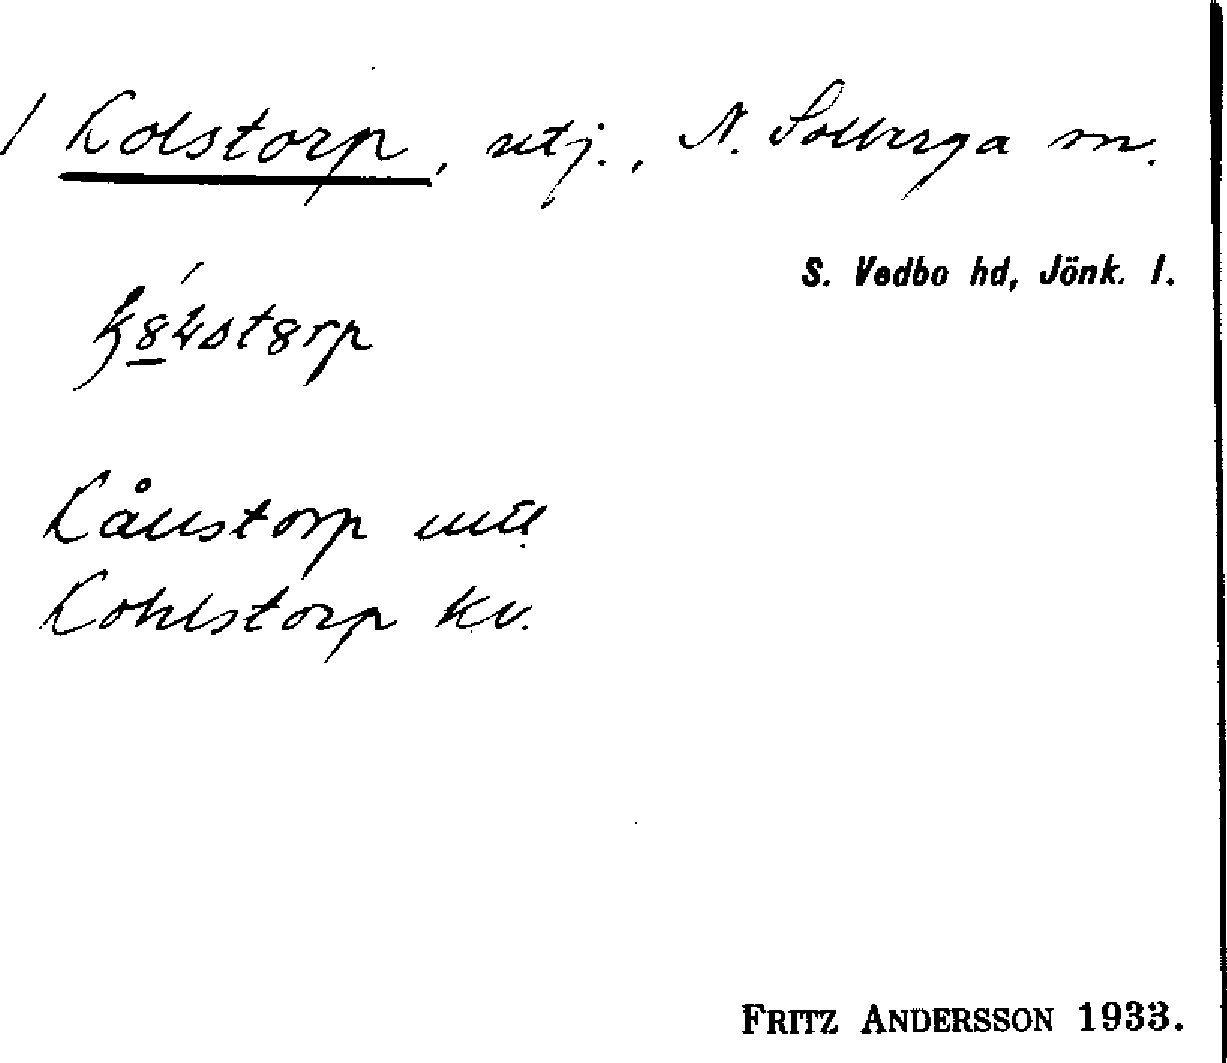 1 Kolstorp, utj., N. Solberga sn.
S. Vedbo hd, Jönk. l.
Kållstorp
Kohlstorp kv.
FRITZ ANDERSSON 1933.